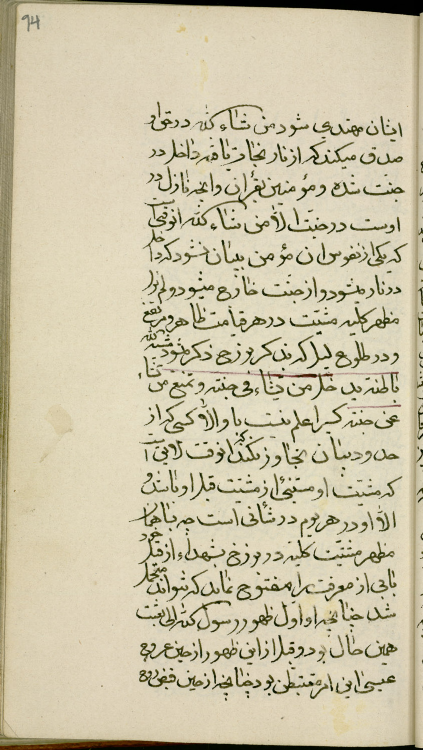 94
ایشان مهتدی شود من شاء الله در حق او
صدق میکند که از نار نجات یافته داخل در
جنت شده و مؤمنین بقرآن و آنچه نازل در
اوست در جنت الا من شاء الله
که یکی از نفوس آن مؤمن ببیان نشود که داخل
در نار میشود و از جنت خارج میشود و لم یزل
مظهر کلیه مشیت در هر قیامت ظاهر و مرتفع
و در طلوع لیل که بذکر برزخ ذکر میشود مشیة الله
باطنه یدخل من یشاء فی جنته و یمنع من یشاء
عن جنته کسی را علم نیست باو الا کسی که از
حدود بیان تجاوز نکند آنوقت
که مشیت او از مشیت قبل او
الا او در هر یوم در شأنی است چه
مظهر مشیت کلیه در برزخ شهداء از قبل خود
بابی از معرفت را مفتوح نماید که بتواند متحمل
شد چنانچه اول ظهور رسول الله الی بعثت
همین حال بود و قبل از این ظهور از حین عروج
عیسی این امر بود چنانچه از حین قبض روح